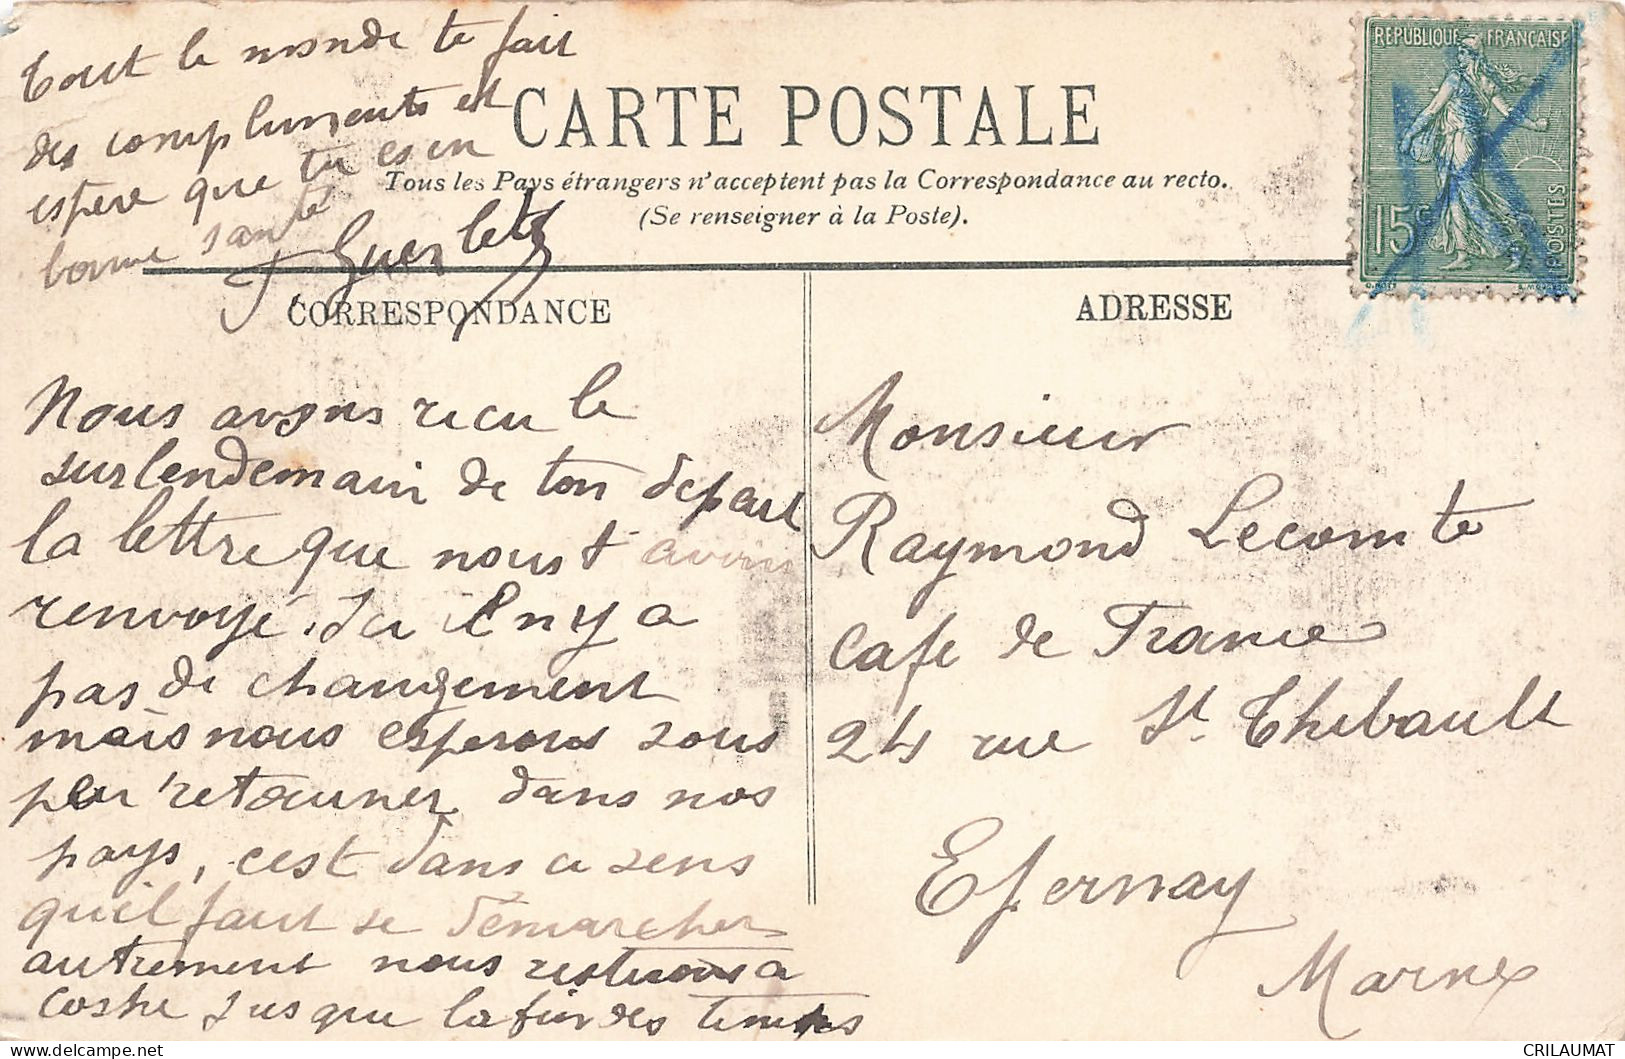 Tout le monde te fait
des compliments et
espere que tu es en
bonne santé
CARTE POSTALE
Tous les Pays étrangers n'acceptent pas la Correspondance au recto.
(Se renseigner à la Poste).
REPUBLIQUE FRANÇAISE
15c
POSTES
CORRESPONDANCE
Nous avons recu le
surlendemain de ton depart
la lettre que nous t avons
renvoyé. Ici il n y a
pas de changement
mais nous esperons sous
peu retourner dans nos
pays, cest dans ce sens
quil faut se démarcher
autrement nous resterons a
jusque la fin des temps
ADRESSE
Monsieur
Raymond Lecomte
Cafe de France
24 rue St. Thibault
Epernay
Marne
CRILAUMAT